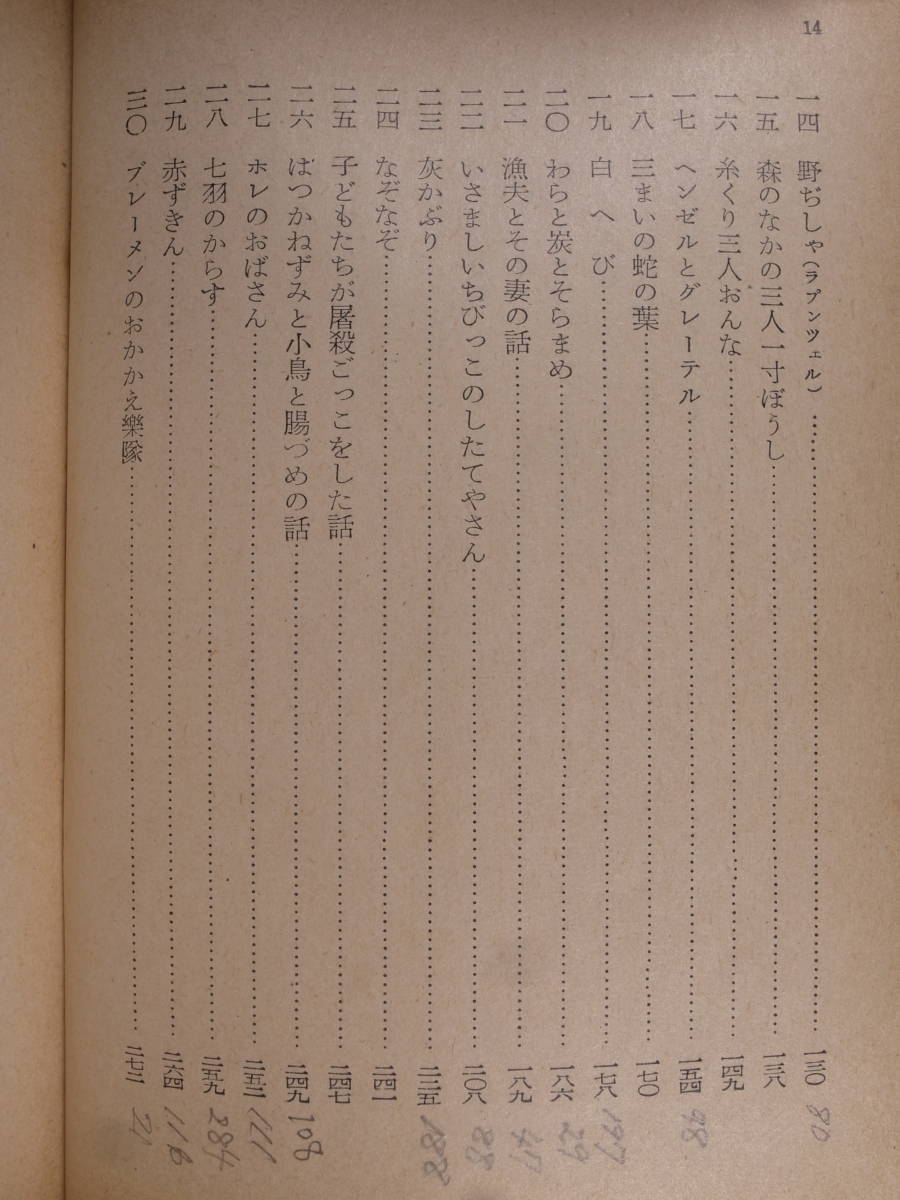 14
一四 野ぢしゃ(ラプンツェル)……一三〇 80
一五 森のなかの三人一寸ぼうし……一三八
一六 糸くり三人おんな……一四九
一七 ヘンゼルとグレーテル……一五四
一八 三まいの蛇の葉……一七〇
一九 白へび……一七八
二〇 わらと炭とそらまめ……一八六
二一 漁夫とその妻の話……一八九
二二 いさましいちびっこのしたてやさん……二〇八
二三 灰かぶり……二二五 188
二四 なぞなぞ……二四一
二五 子どもたちが屠殺ごっこをした話……二四七
二六 はつかねずみと小鳥と腸づめの話……二四九 108
二七 ホレのおばさん……二五二 111
二八 七羽のからす……二五九 284
二九 赤ずきん……二六四 116
三〇 ブレーメンのおかかえ樂隊……二七二 21